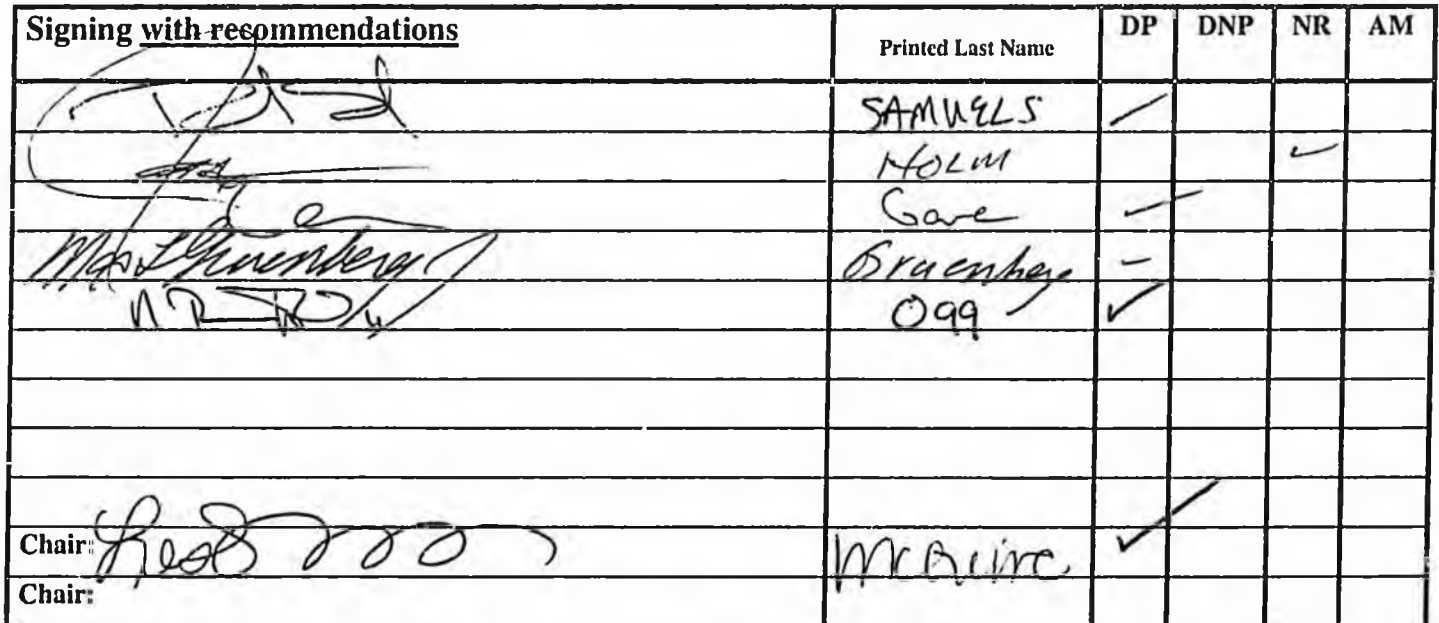 Signing with recommendations Printed Last Name DP DNP NR AM
SAMUELS
HOLM
Gara
Max F Gruenberg Gruenberg
Ogg
Chair: McGuire
Chair: